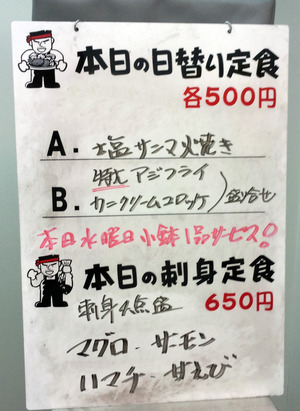 本日の日替り定食
各500円
A. 塩サンマ火焼き
特大アジフライ
B. カニクリームコロッケ 盛合せ
本日水曜日小鉢1品サービス!
本日の刺身定食
650円
刺身4点盛
マグロ・サーモン
ハマチ・甘えび